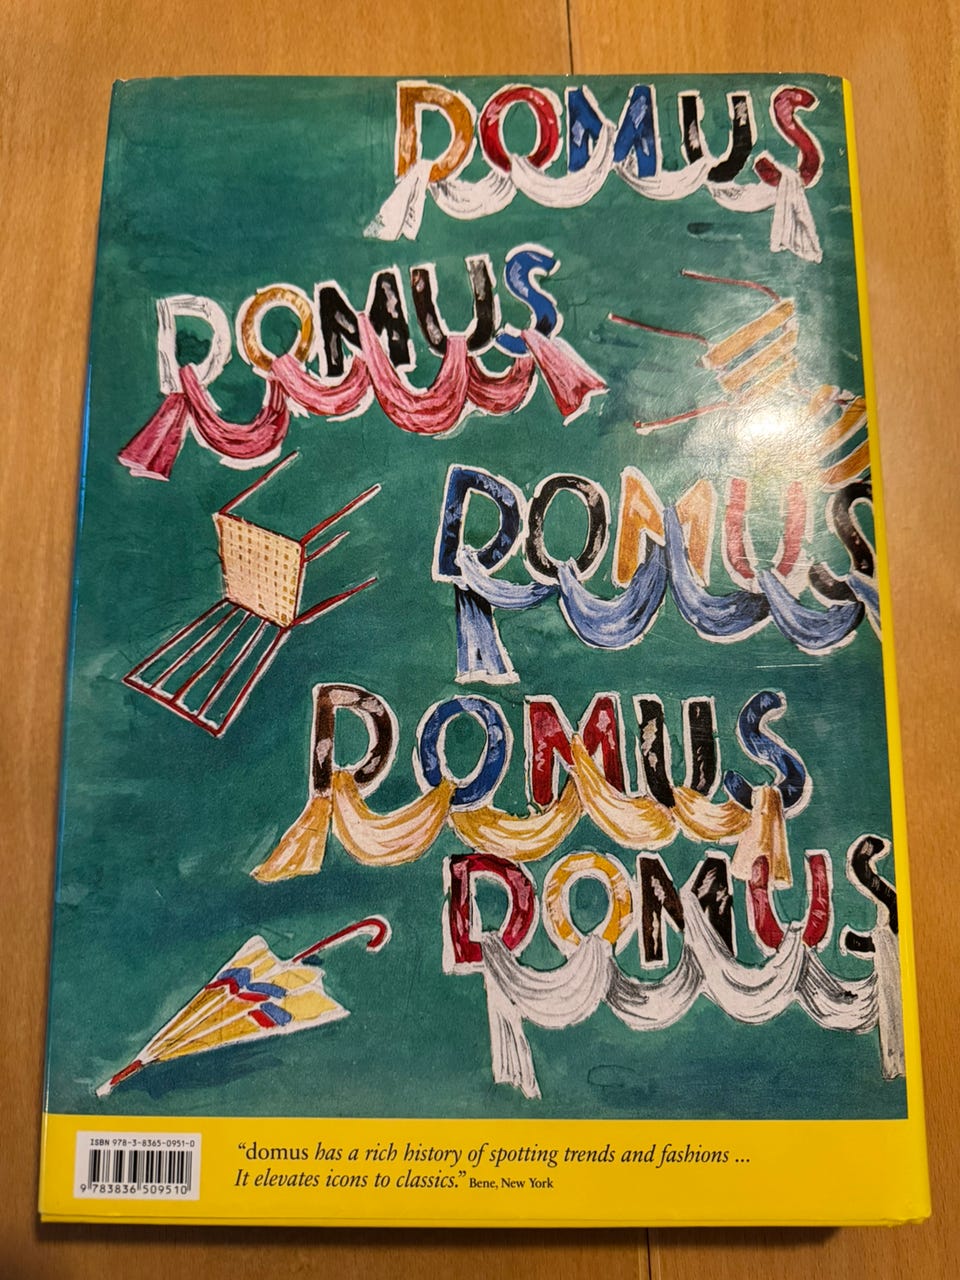 DOMUS
DOMUS
DOMUS
DOMUS
DOMUS
ISBN 978-3-8365-0951-0
9 783836 509510
“domus has a rich history of spotting trends and fashions ...
It elevates icons to classics.” Bene, New York